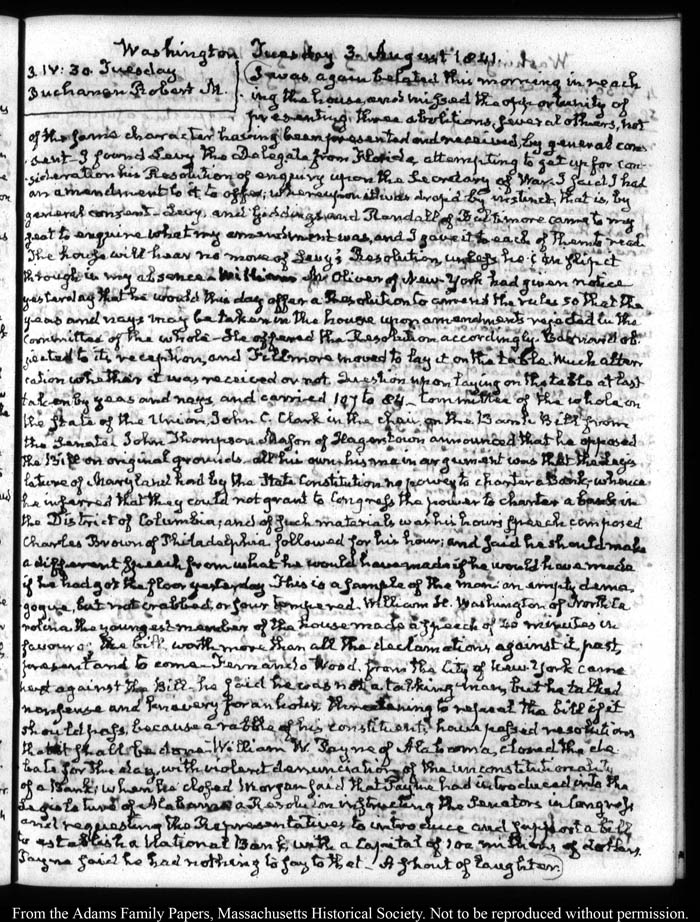 Washington Tuesday 3. August 1841.
3. IV: 30. Tuesday
Buchanan Robert M.
I was again belated this morning in reach
ing the house, and missed the opportunity of
presenting three abolitions, several others, not
of the same character having been presented and received, by general con
sent. I found Levy the Delegate from Florida, attempting to get up for con
sideration his Resolution of enquiry upon the Secretary of War. I said I had
an amendment to it to offer; whereupon it was drop'd by instinct, that is, by
general consent. Levy, and Giddings and Randall of Baltimore came to my
seat to enquire what my amendment was, and I gave it to each of them to read.
The house will hear no more of Levy's Resolution, unless he can slip it
through in my absence. William M. Oliver of New-York had given notice
yesterday that he would this day offer a Resolution to amend the rules so that the
yeas and nays may be taken in the house upon amendments rejected in the
Committee of the whole. He offered the Resolution accordingly. Barnard ob
jected to its reception, and Fillmore moved to lay it on the table. Much alter
cation whether it was received or not. Question upon laying on the table at last
taken by yeas and nays and carried 107 to 84. Committee of the whole on
the State of the Union, John C. Clark in the chair, on the Bank Bill from
the Senate. John Thompson Mason of Hagerstown announced that he opposed
the Bill on original grounds all his own his main argument was that the Legis
lature of Maryland had by the State Constitution no power to charter a Bank, whence
he inferred that they could not grant to Congress the power to charter a bank in
the District of Columbia; and of such materials was his hours speech composed
Charles Brown of Philadelphia followed for his hour; and said he should make
a different speech from what he would have made if he would have made
if he had got the floor yesterday. This is a sample of the man: an empty dema
gogue, but not crabbed, or sour tempered. William H. Washington of North-Ca
rolina the youngest member of the house made a speech of 40 minutes in
favour of the bill, worth more than all the declamations against it, past,
present and to come. Fernando Wood, from the City of New-York came
next against the Bill. he said he was not a talking man, but he talked
nonsense and knavery for an hour, threatening to repeal the bill if it
should pass, because a rabble of his constituents have passed resolutions
that it shall be done. William W. Payne of Alabama, closed the de
bate for the day, with violent denunciation of the unconstitutionality
of a Bank; when he closed Morgan said that Payne had introduced into the
Legislature of Alabama a Resolution instructing the Senators in Congress
and requesting the Representatives to introduce and support a bill
to establish a National Bank, with a capital of 100 millions of dollars.
Payne said he had nothing to say to that. A shout of laughter.
From the Adams Family Papers, Massachusetts Historical Society. Not to be reproduced without permission.